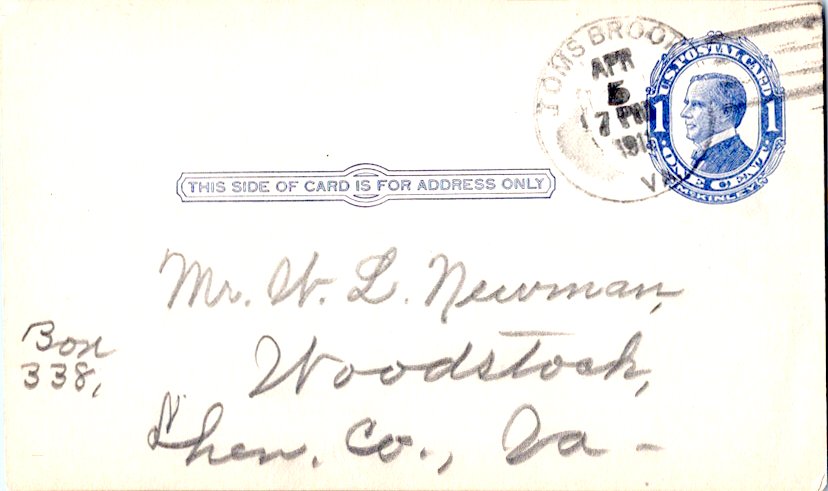 TOMS BROOK
APR
5
7 PM
VA
U.S. POSTAL CARD
1 1
ONE CENT
McKINLEY
THIS SIDE OF CARD IS FOR ADDRESS ONLY
Mr. W. L. Newman,
Woodstock,
Shen. Co., Va -
Box
338,